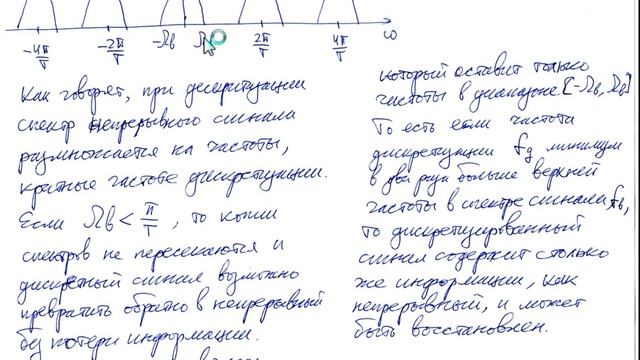 -4π/T -2π/T -Ωв Ωв 2π/T 4π/T ω
Как говорят, при дискретизации
спектр непрерывного сигнала
размножается на частоты,
кратные частоте дискретизации.
Если Ωв < π/T, то копии
спектров не пересекаются и
дискретный сигнал возможно
превратить обратно в непрерывный
без потери информации.
который оставит только
частоты в диапазоне [-Ωв, Ωв]
То есть если частота
дискретизации fд минимум
в два раза больше верхней
частоты в спектре сигнала fв,
то дискретизированный
сигнал содержит столько
же информации, как
непрерывный, и может
быть восстановлен.